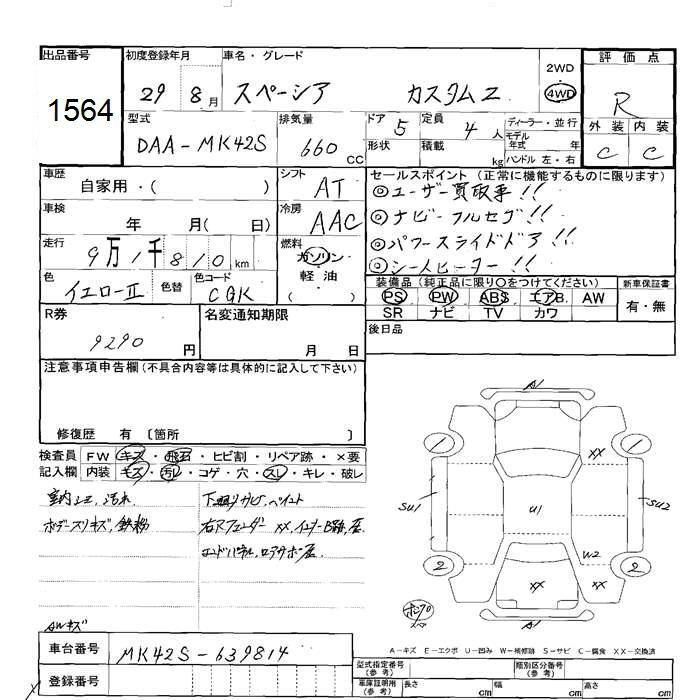 出品番号
1564
初度登録年月
29 8月
車名・グレード
スペーシア カスタムZ
2WD
4WD
評価点
R
外装 内装
C C
型式
DAA-MK42S
排気量
660 CC
ドア 5
形状
定員 4人
積載 kg
ディーラー・並行
モデル
年式 年
ハンドル 左・右
車歴
自家用・( )
シフト
AT
セールスポイント (正常に機能するものに限ります)
◎ユーザー買取車!!
◎ナビーフルセグ!!
◎パワースライドドア!!
◎シートヒーター!!
車検
年 月( 日)
冷房
AAC
走行
9万1千810km
燃料
ガソリン
軽油
( )
色
イエローII
色替
色コード
CGK
装備品(純正品に限り○をつけてください)
PS PW ABS エアB. AW
SR ナビ TV カワ
新車保証書
有・無
R券
9290円
名変通知期限
月 日
後日品
注意事項申告欄(不具合内容等は具体的に記入して下さい)
修復歴 有 〔箇所 〕
検査員
記入欄
FW キズ・飛石・ヒビ割・リペア跡・×要
内装 キズ・汚レ・コゲ・穴・スレ・キレ・破レ
室内シミ、汚れ
ボデースリキズ、鉄粉
下廻りサビ、ペイント
AWキズ
A1
XX
SU1
U1
SU2
W2
1
1
2
2
XX
XX
A1
A-キズ E-エクボ U-凹み W-補修跡 S-サビ C-腐食 XX-交換済
車台番号
MK42S-639814
登録番号
型式指定番号
(参考)
類別区分番号
(参考)
車庫証明用
(参考)
長さ cm 幅 cm 高さ cm